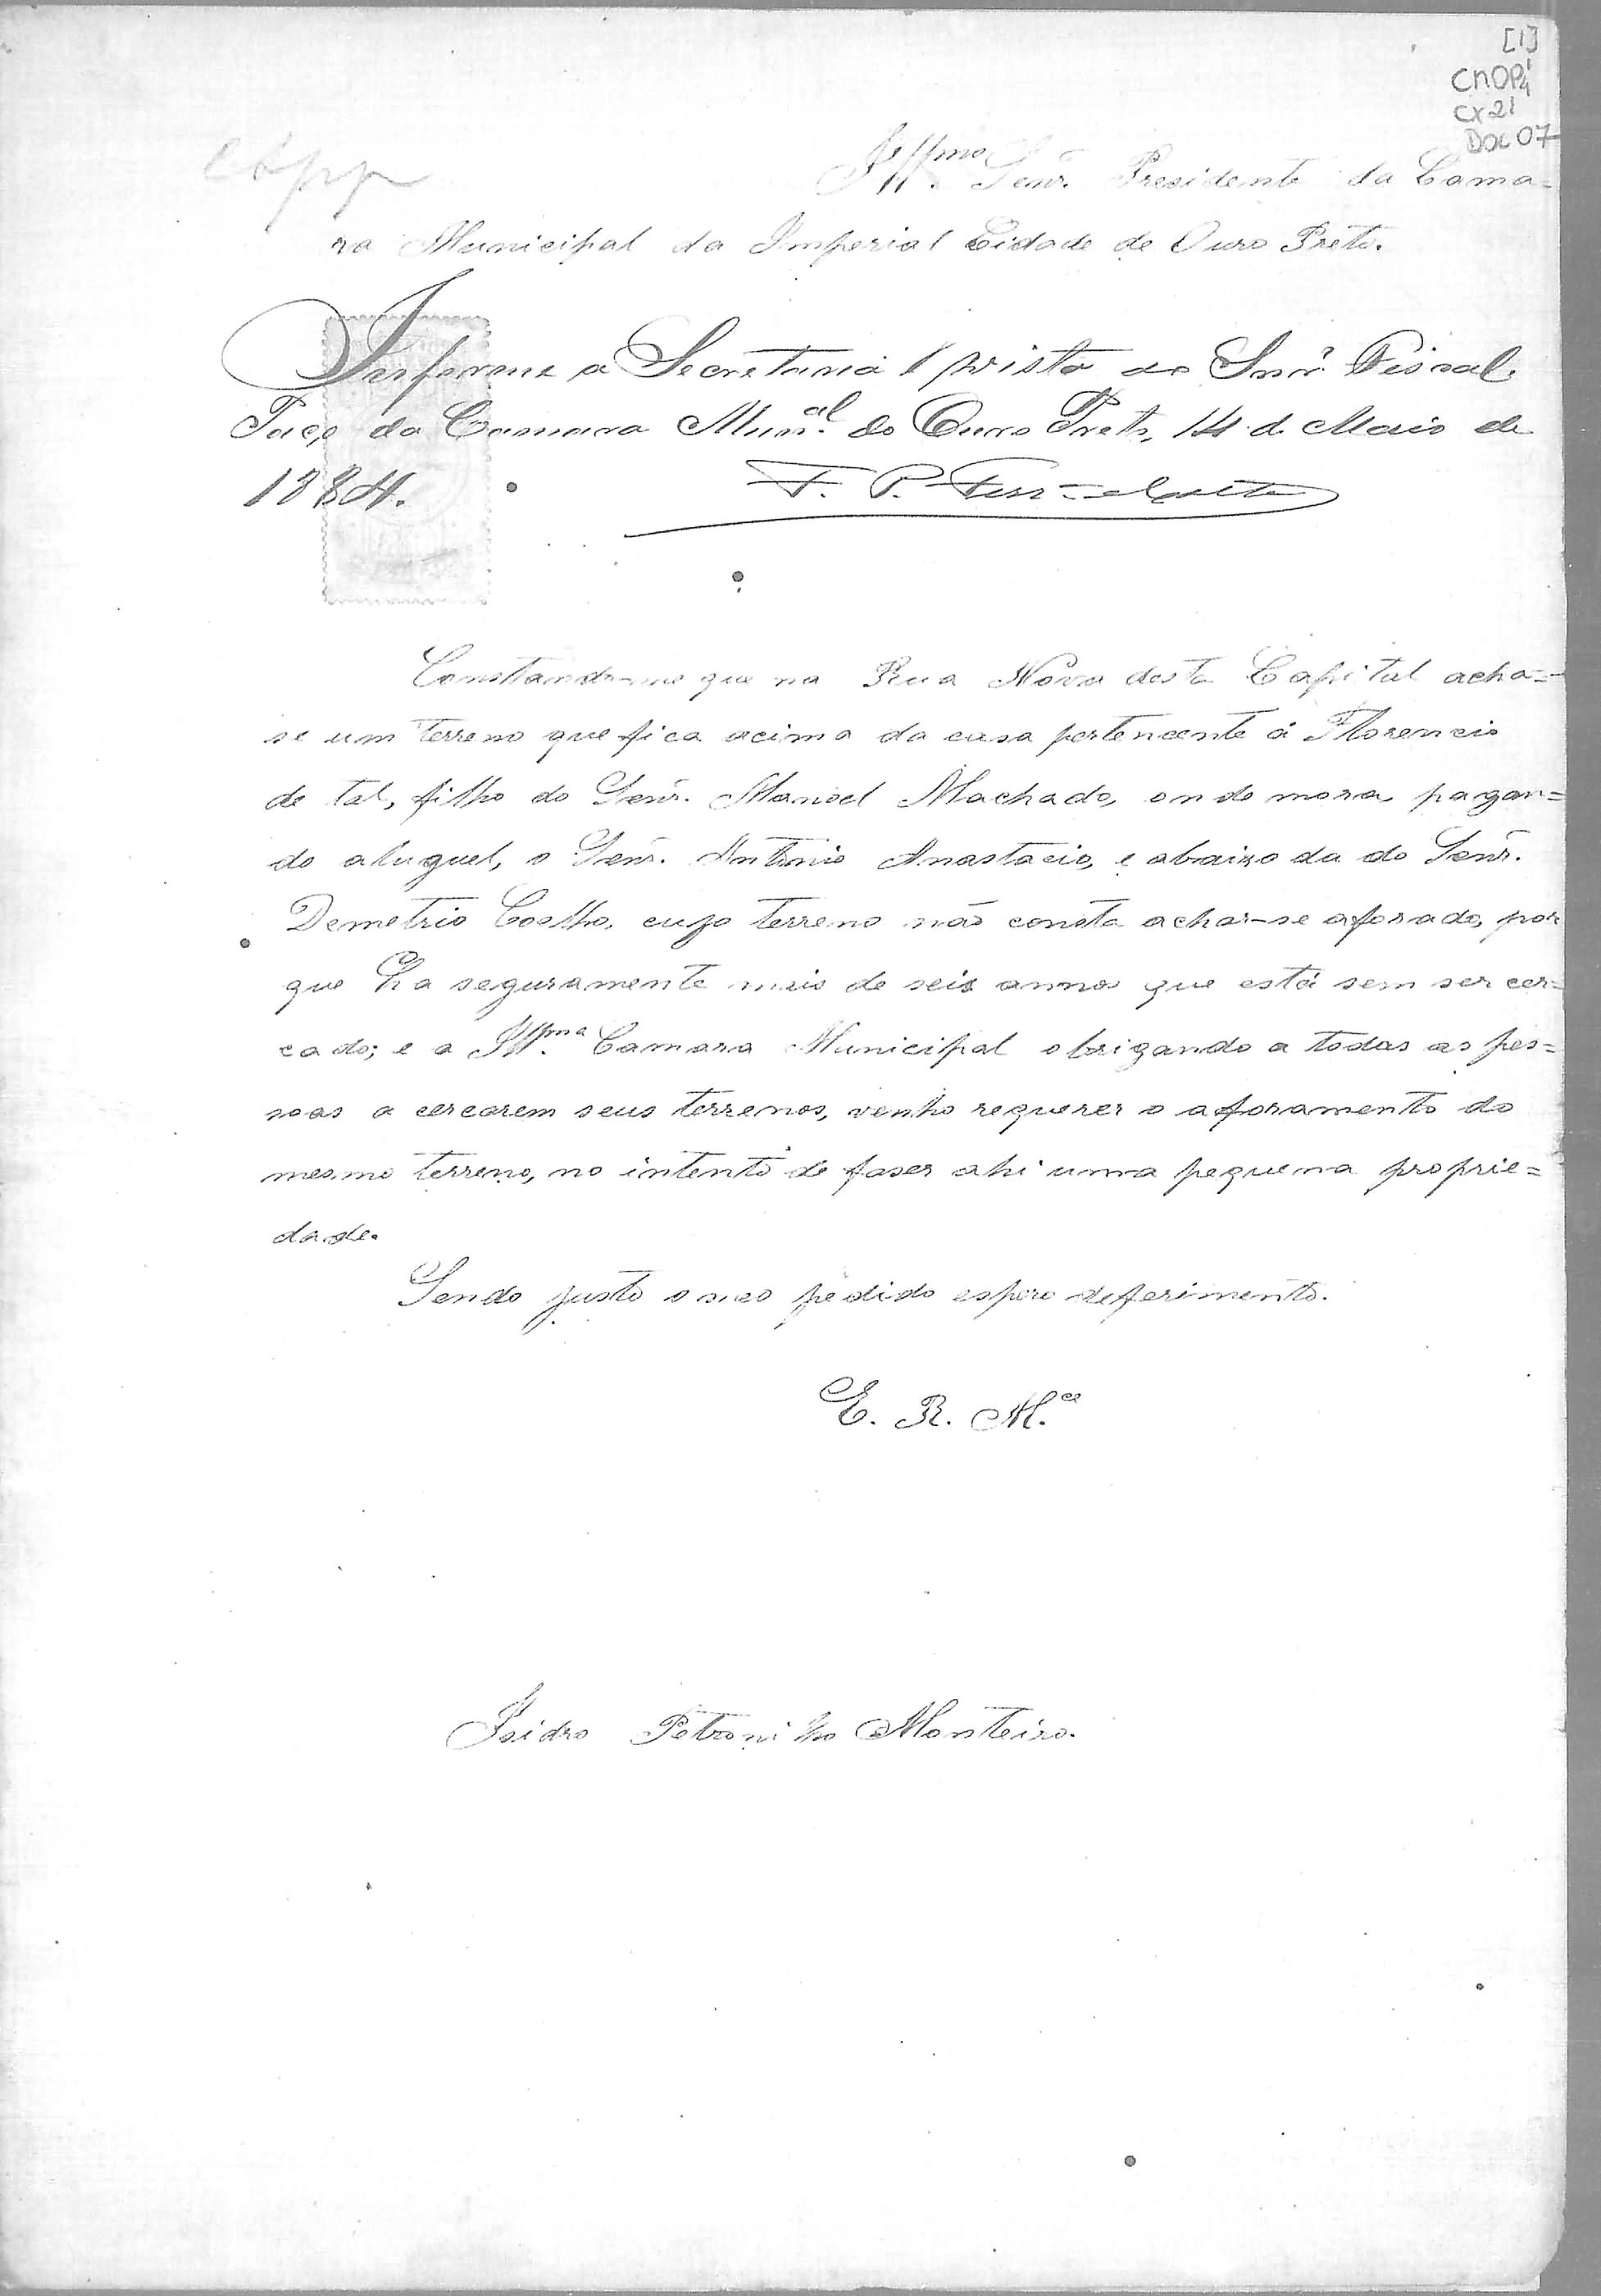 [1]
CMOP
CX 21
DOC 07
Illmo. Senr. Presidente da Cama=
ra Municipal da Imperial Cidade de Ouro Preto.
Informe a Secretaria e vista ao Snr. Fiscal.
Paço da Camara Munal. do Ouro Preto, 14 de Maio de
1884.
F. P.
Constando-me que na Rua Nova desta Capital acha=
se um terreno que fica acima da casa pertencente á Florencio
de tal, filho do Senr. Manoel Machado, onde mora, pagan=
do aluguel, o Senr. Antonio Anastacio, e abaixo da do Senr.
Demetrio Coelho, cujo terreno não consta achar-se aforado, por
que ha seguramente mais de seis annos que está sem ser cer=
cado; e a Illma. Camara Municipal obrigando a todas as pes=
soas a cercarem seus terrenos, venho requerer o aforamento do
mesmo terreno, no intento de faser ahi uma pequena proprie=
dade.
Sendo justo o meo pedido espero deferimento.
E. R. M.ce
Isidro Petronilho Monteiro.